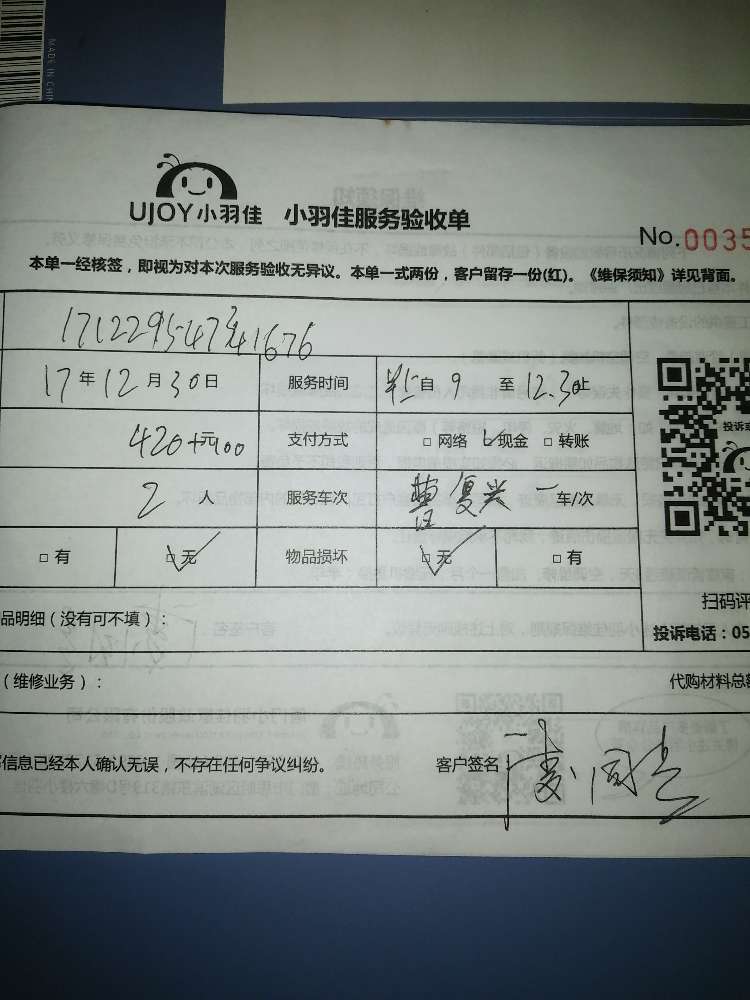 MADE IN CHIN
UJOY小羽佳 小羽佳服务验收单
No.0035
本单一经核签，即视为对本次服务验收无异议。本单一式两份，客户留存一份(红)。《维保须知》详见背面。
17年12月30日 服务时间 自9至12.30止
420+元400 支付方式 □网络 ☑现金 □转账
2人 服务车次 复兴一车/次
□有 ☑无 物品损坏 ☑无 □有
扫码评
品明细（没有可不填）：
投诉电话：05
（维修业务）： 代购材料总额
信息已经本人确认无误，不存在任何争议纠纷。 客户签名